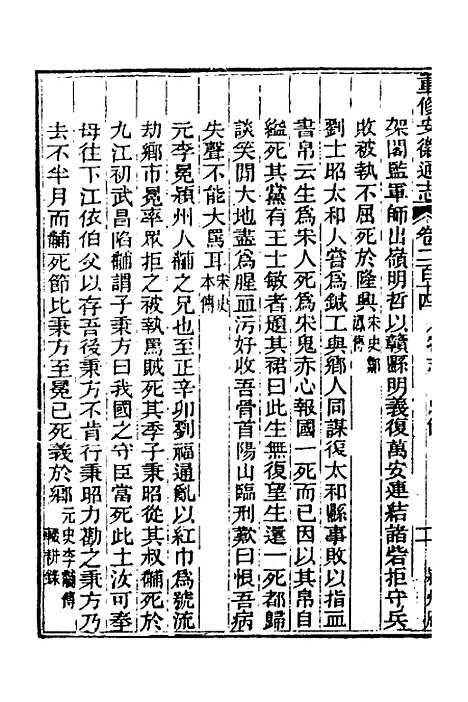 重修安徽通志 卷二百十四 人物志
架閣監軍師出嶺明哲以贛縣明義復萬安連結諸砦拒守兵
敗被執不屈死於隆興宋史鄒㵯傳
劉士昭太和人嘗爲鍼工與鄉人同謀復太和縣事敗以指血
書帛云生爲宋人死爲宋鬼赤心報國一死而已因以其帛自
縊死其黨有王士敏者題其裾曰此生無復望生還一死都歸
談笑間大地盡爲腥血污好收吾骨首陽山臨刑歎曰恨吾病
失聲不能大罵耳宋史本傳
元李冕潁州人黼之兄也至正辛卯劉福通亂以紅巾爲號流
劫鄉市冕率眾拒之被執罵賊死其季子秉昭從其叔黼死於
九江初武昌陷黼謂子秉方曰我國之守臣當死此土汝可奉
母往下江依伯父以存吾後秉方不肯行秉昭力勸之秉方乃
去不半月而黼死節比秉方至冕已死義於鄉元史李黼傳輟耕錄